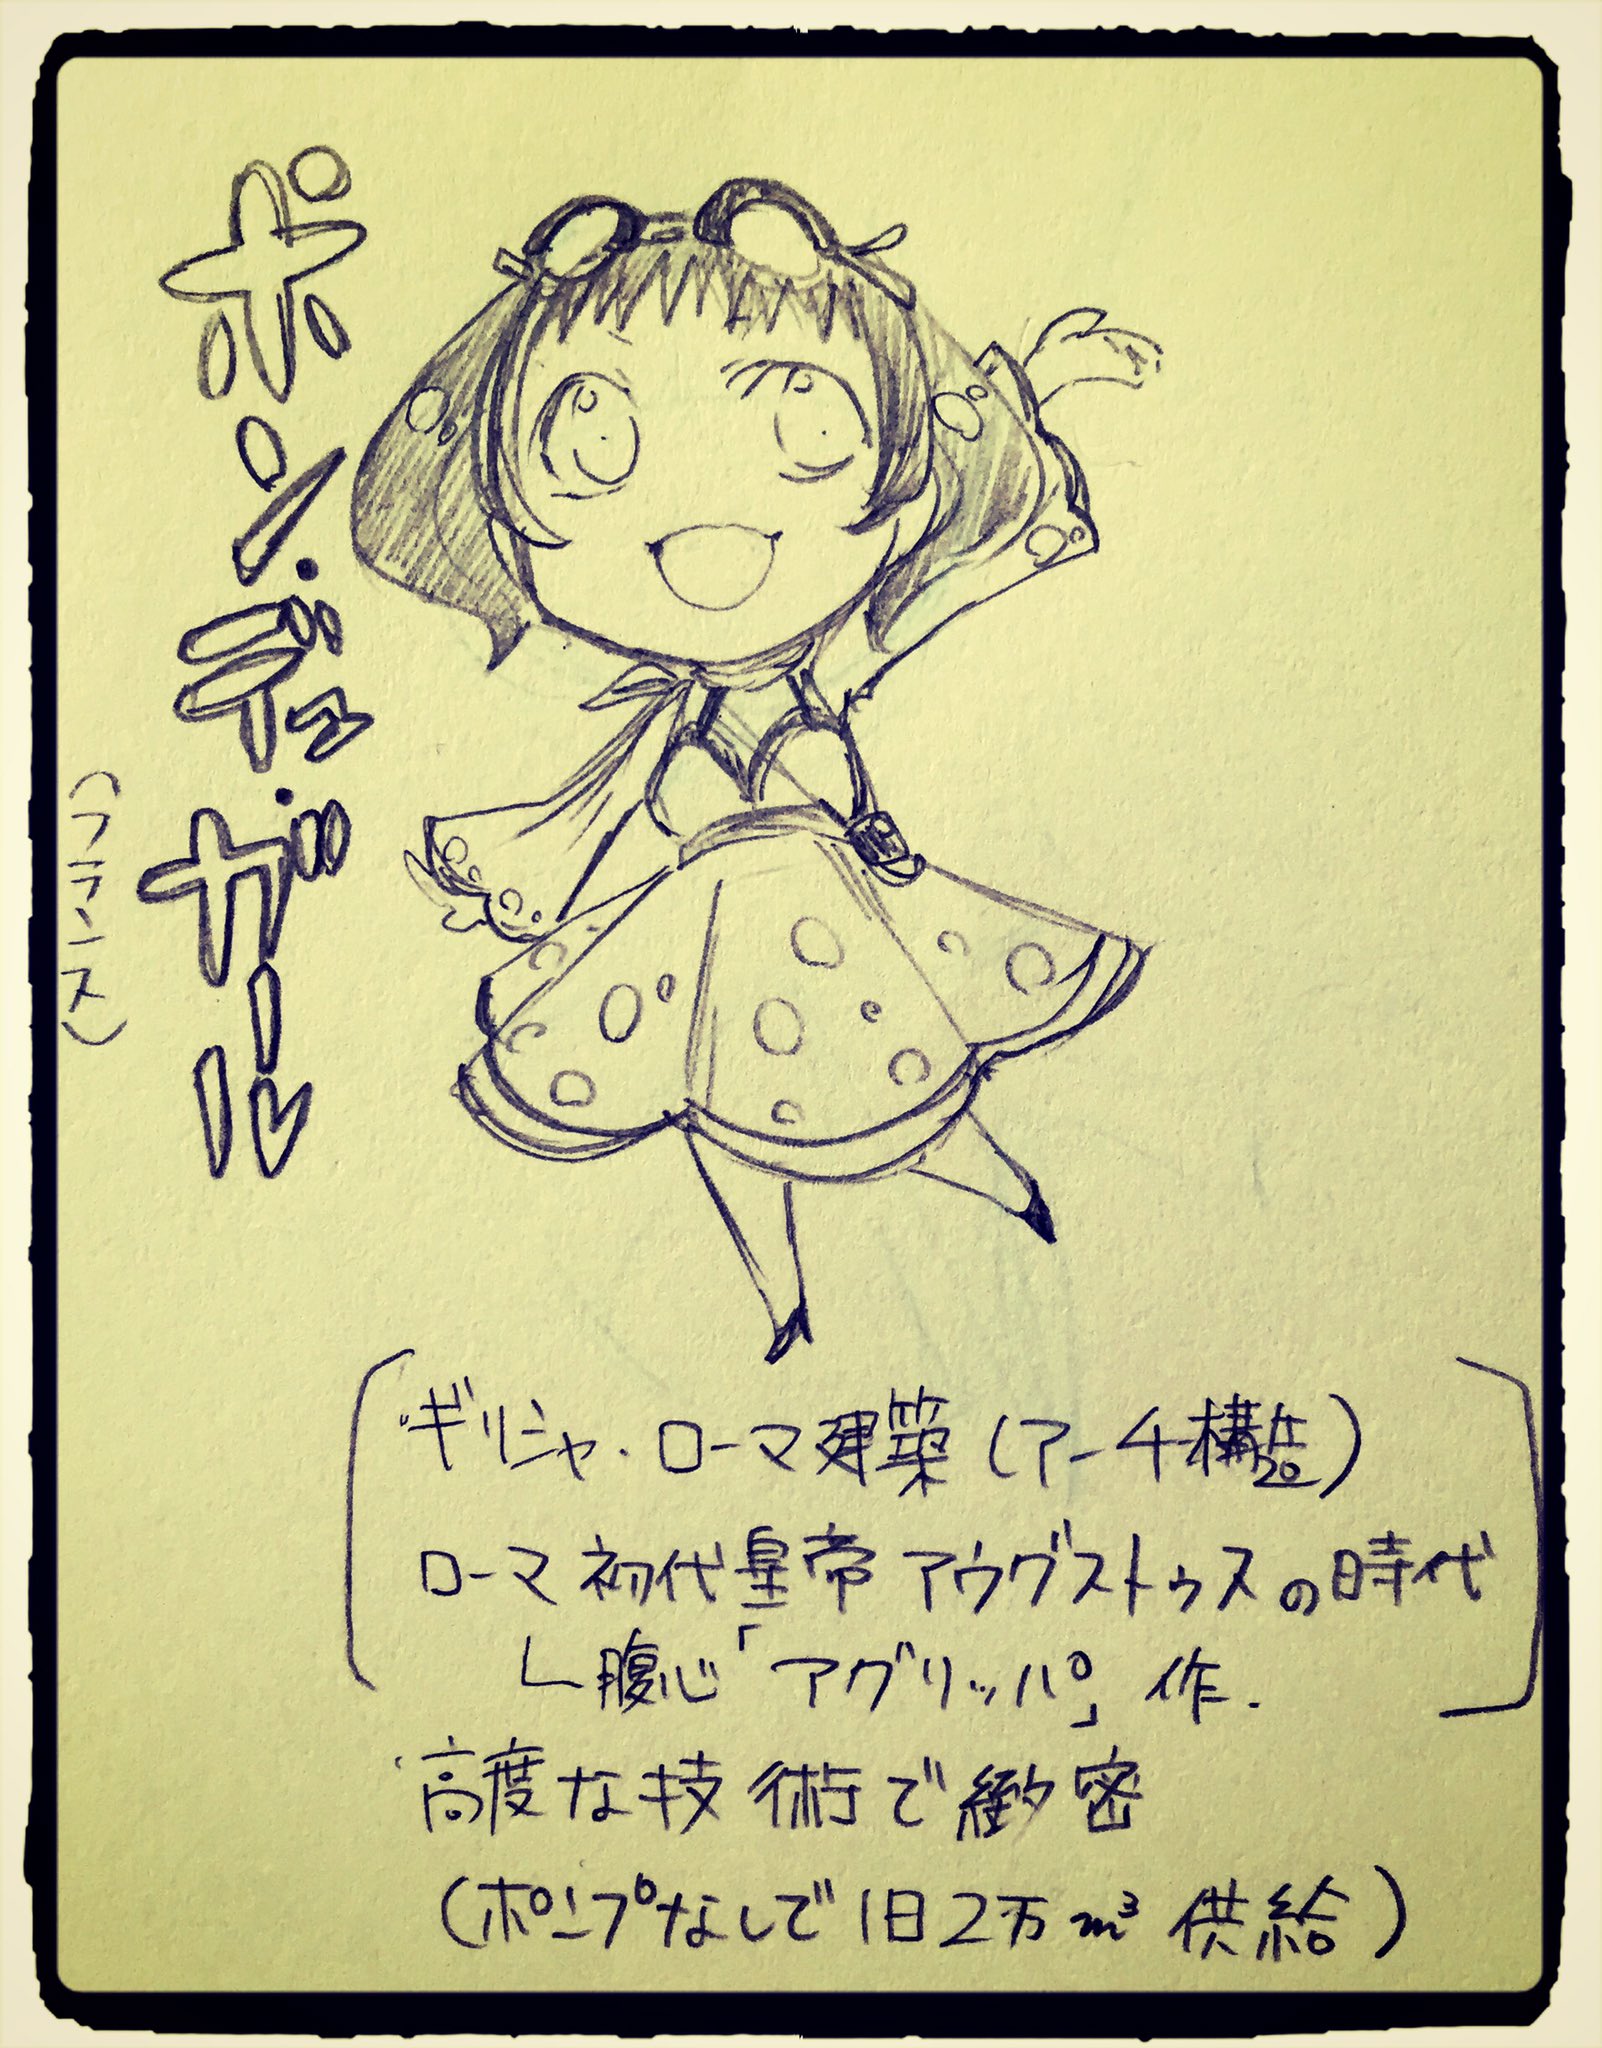 ポンデュガール
(フランス)
・ギリシャ・ローマ建築(アーチ構造)
ローマ初代皇帝アウグストゥスの時代
∟腹心「アグリッパ」作.
・高度な技術で緻密
(ポンプなしで1日2万m³供給)